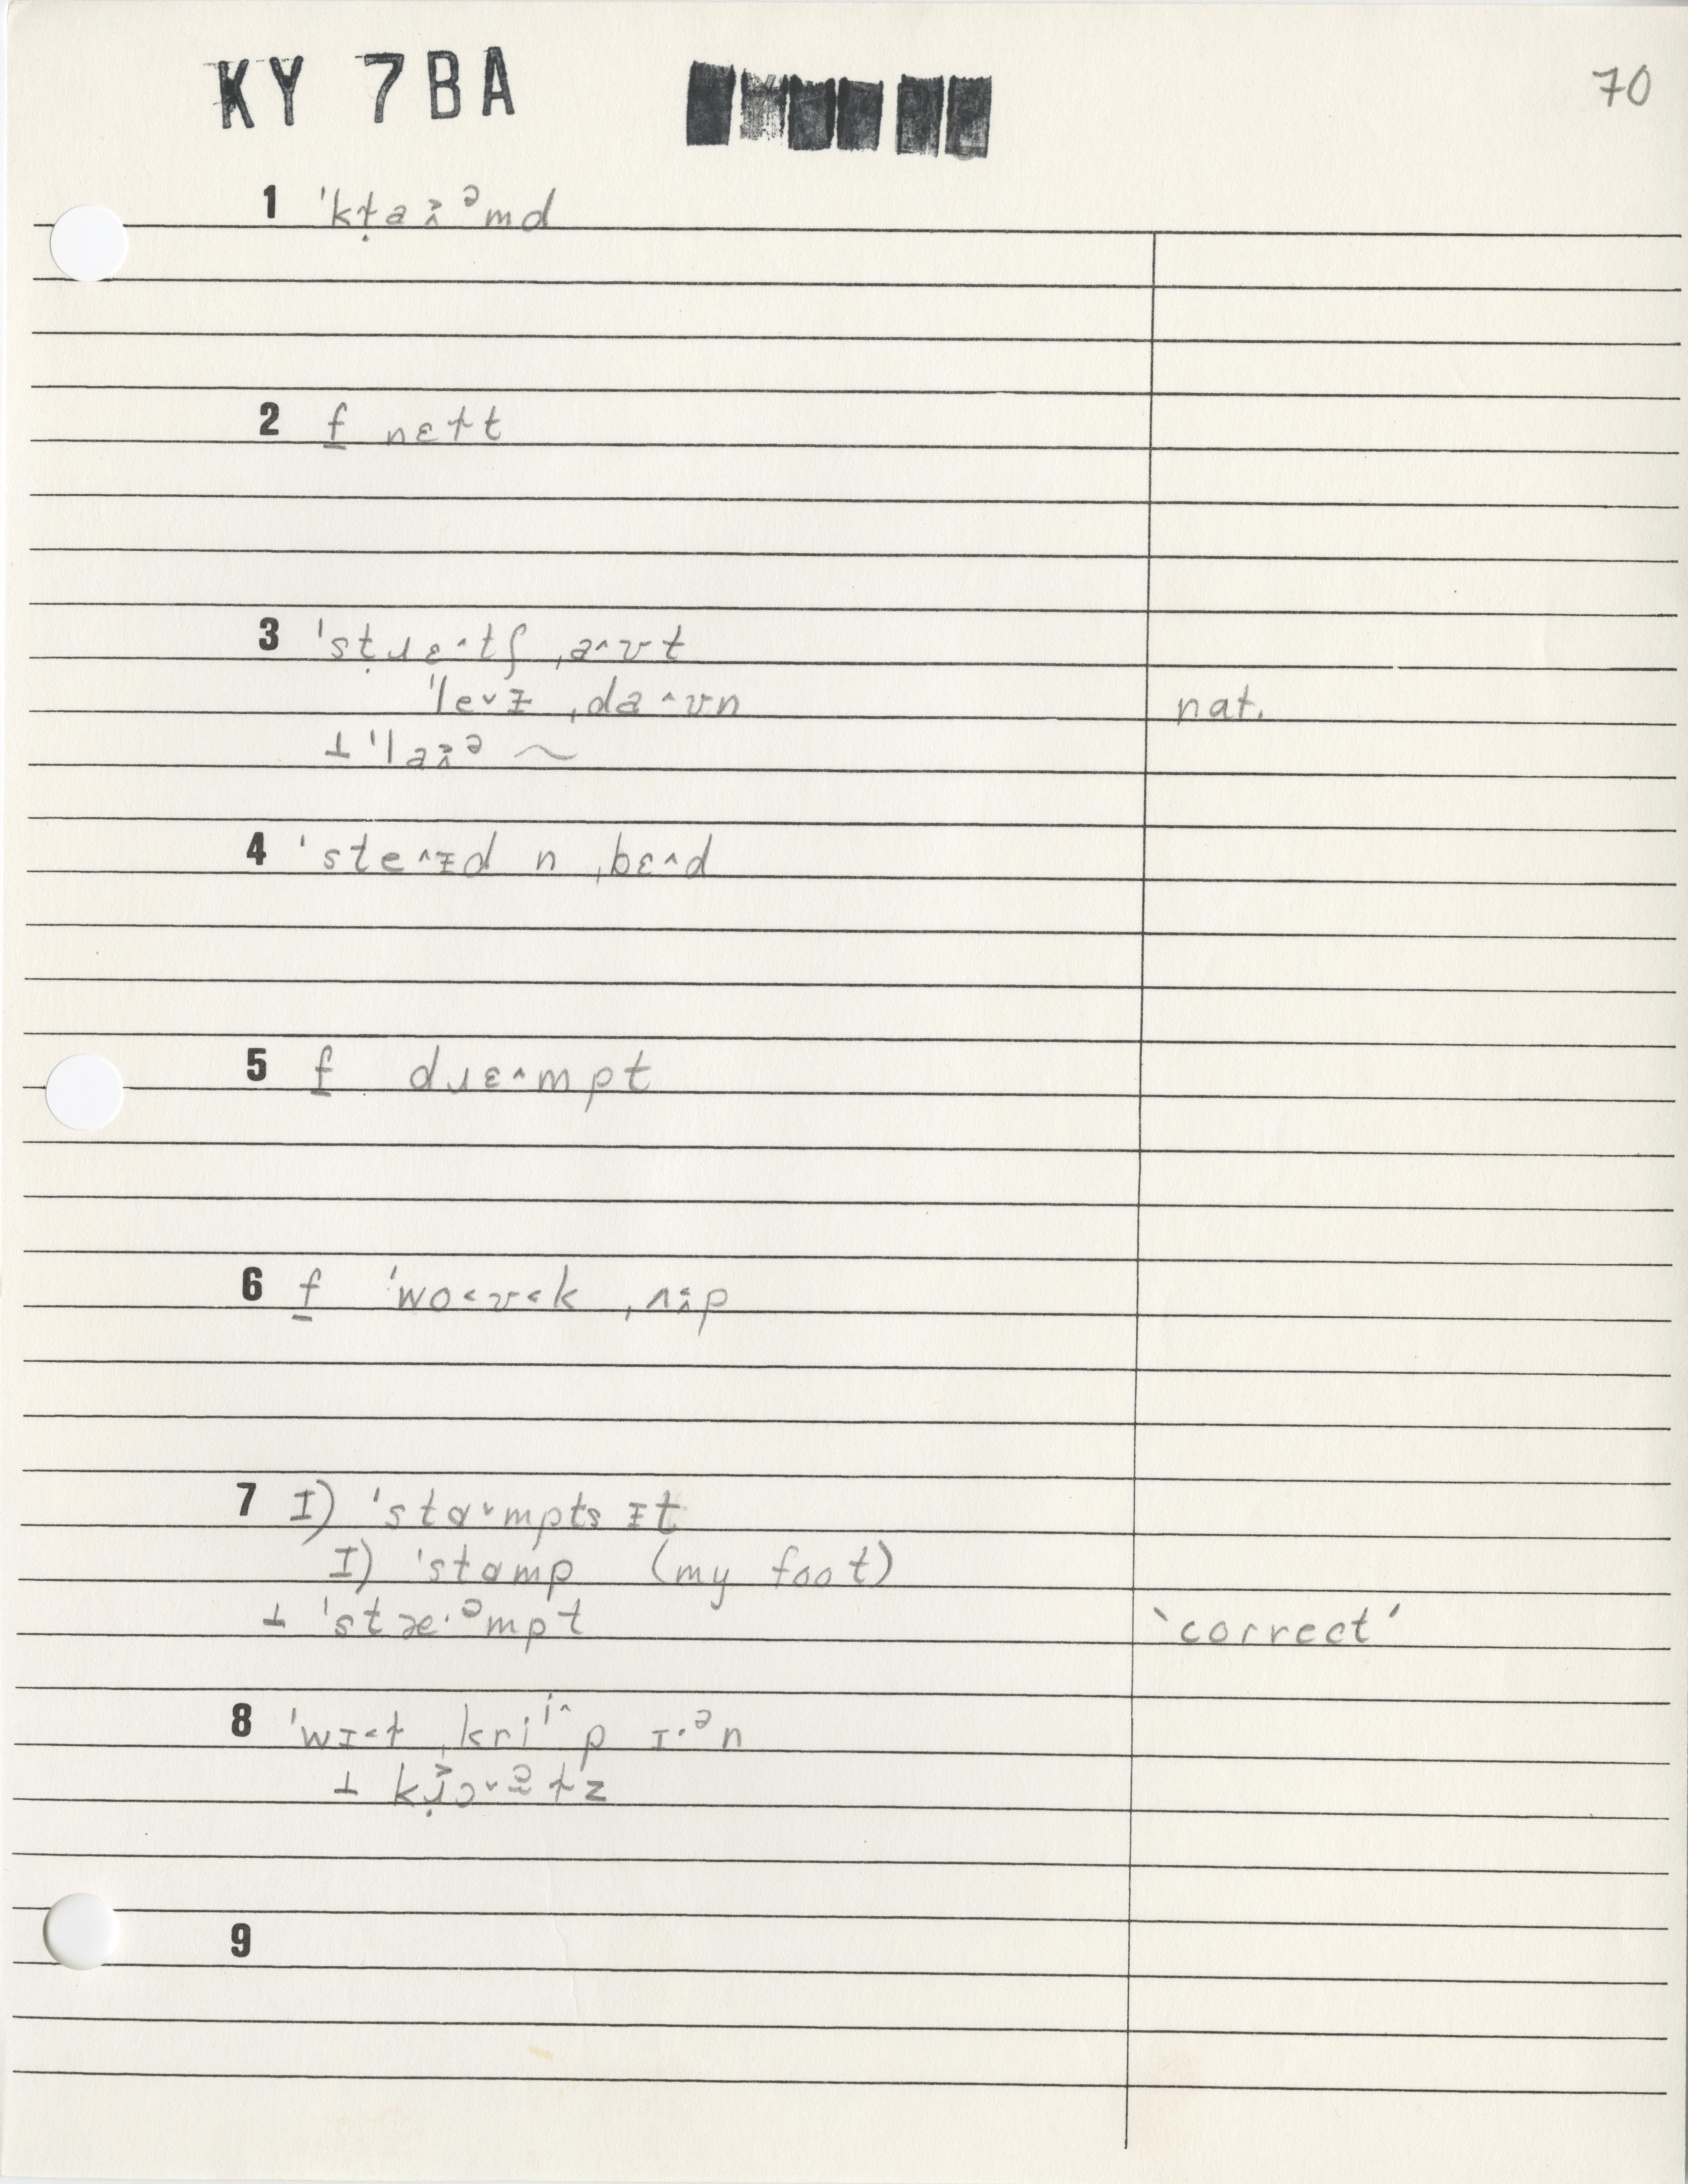 KY 7BA
70
1 ˈkɫ̣aɪ̯ᵊmd
2 f̲ nɛɫt
3 ˈstɹ̣ɛ˄tʃ ˌa˄ʊt
ˈle˅ᵻ ˌda˄ʊn nat.
⊥ ˈlaɪ̯ᵊ ~
4 ˈste˄ᵻd n ˌbɛ˄d
5 f̲ dɹɛ˄mpt
6 f̲ ˈwo˂ʊ˂k ˌʌɪ̯p
7 I) ˈstɑ˅mpts ᵻt
I) ˈstɑmp (my foot)
⊥ ˈstæˑᵊmpt 'correct'
8 ˈwɪ˂ɫ ˌkriⁱ˄p ɪˑᵊn
⊥ kɹ̣ɔ˅ᵊɫz
9